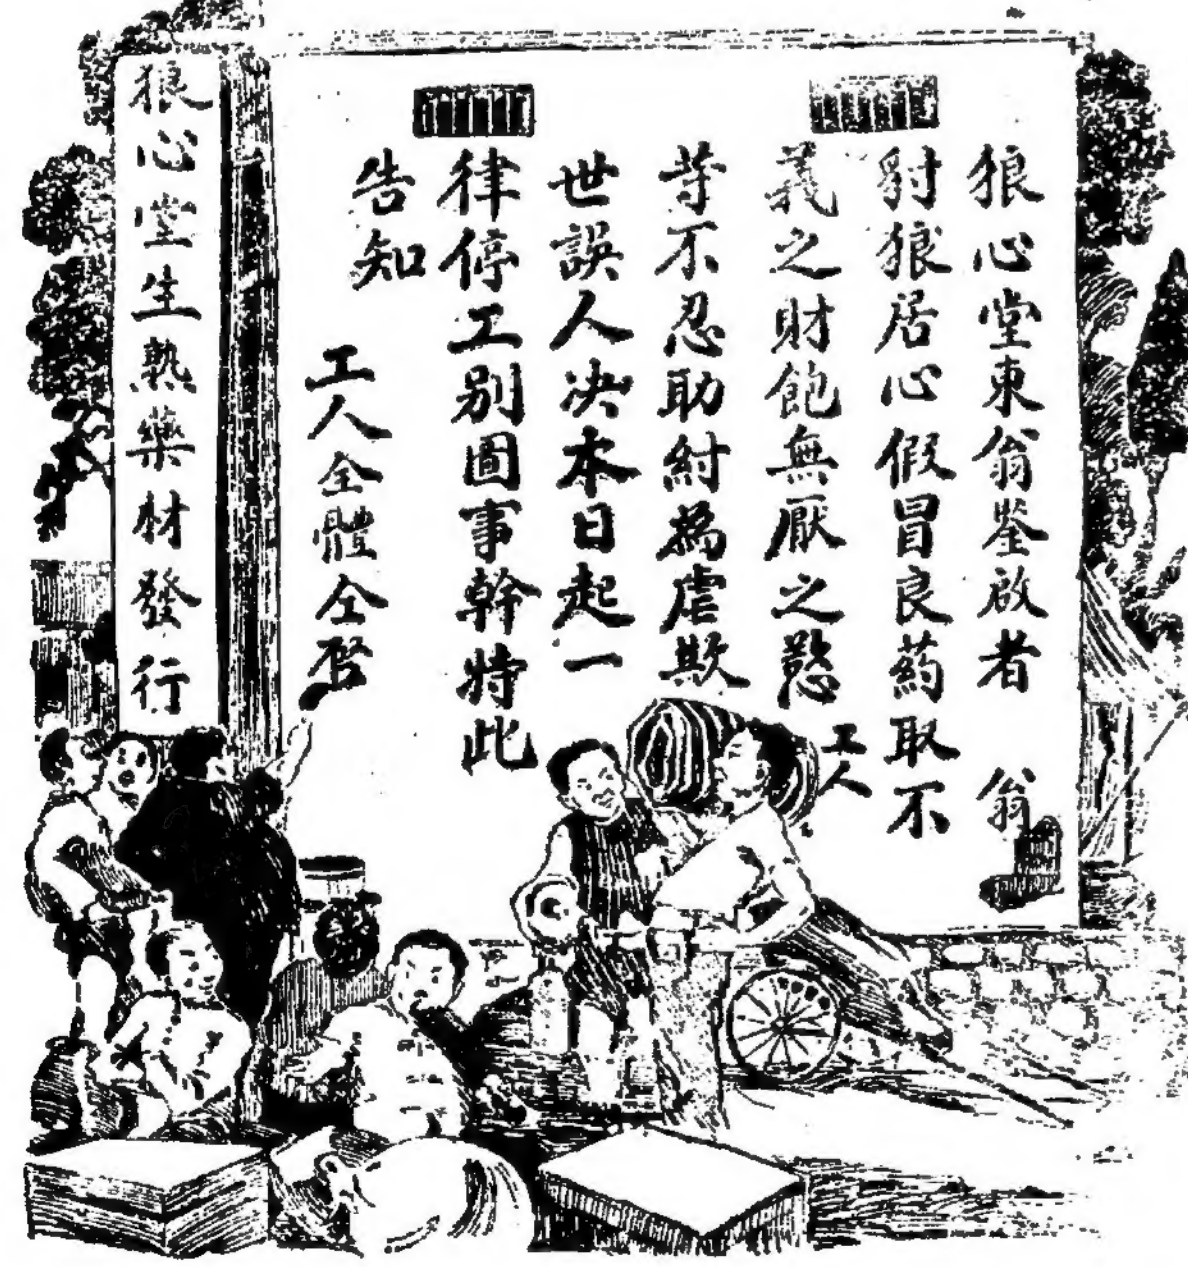 狼心堂東翁鑒啟者　翁
豺狼居心假冒良葯取不
義之財飽無厭之慾工人
等不忍助紂為虐欺
世誤人决本日起一
律停工別圖事幹特此
告知
工人全體仝啓
狼心堂生熟藥材發行